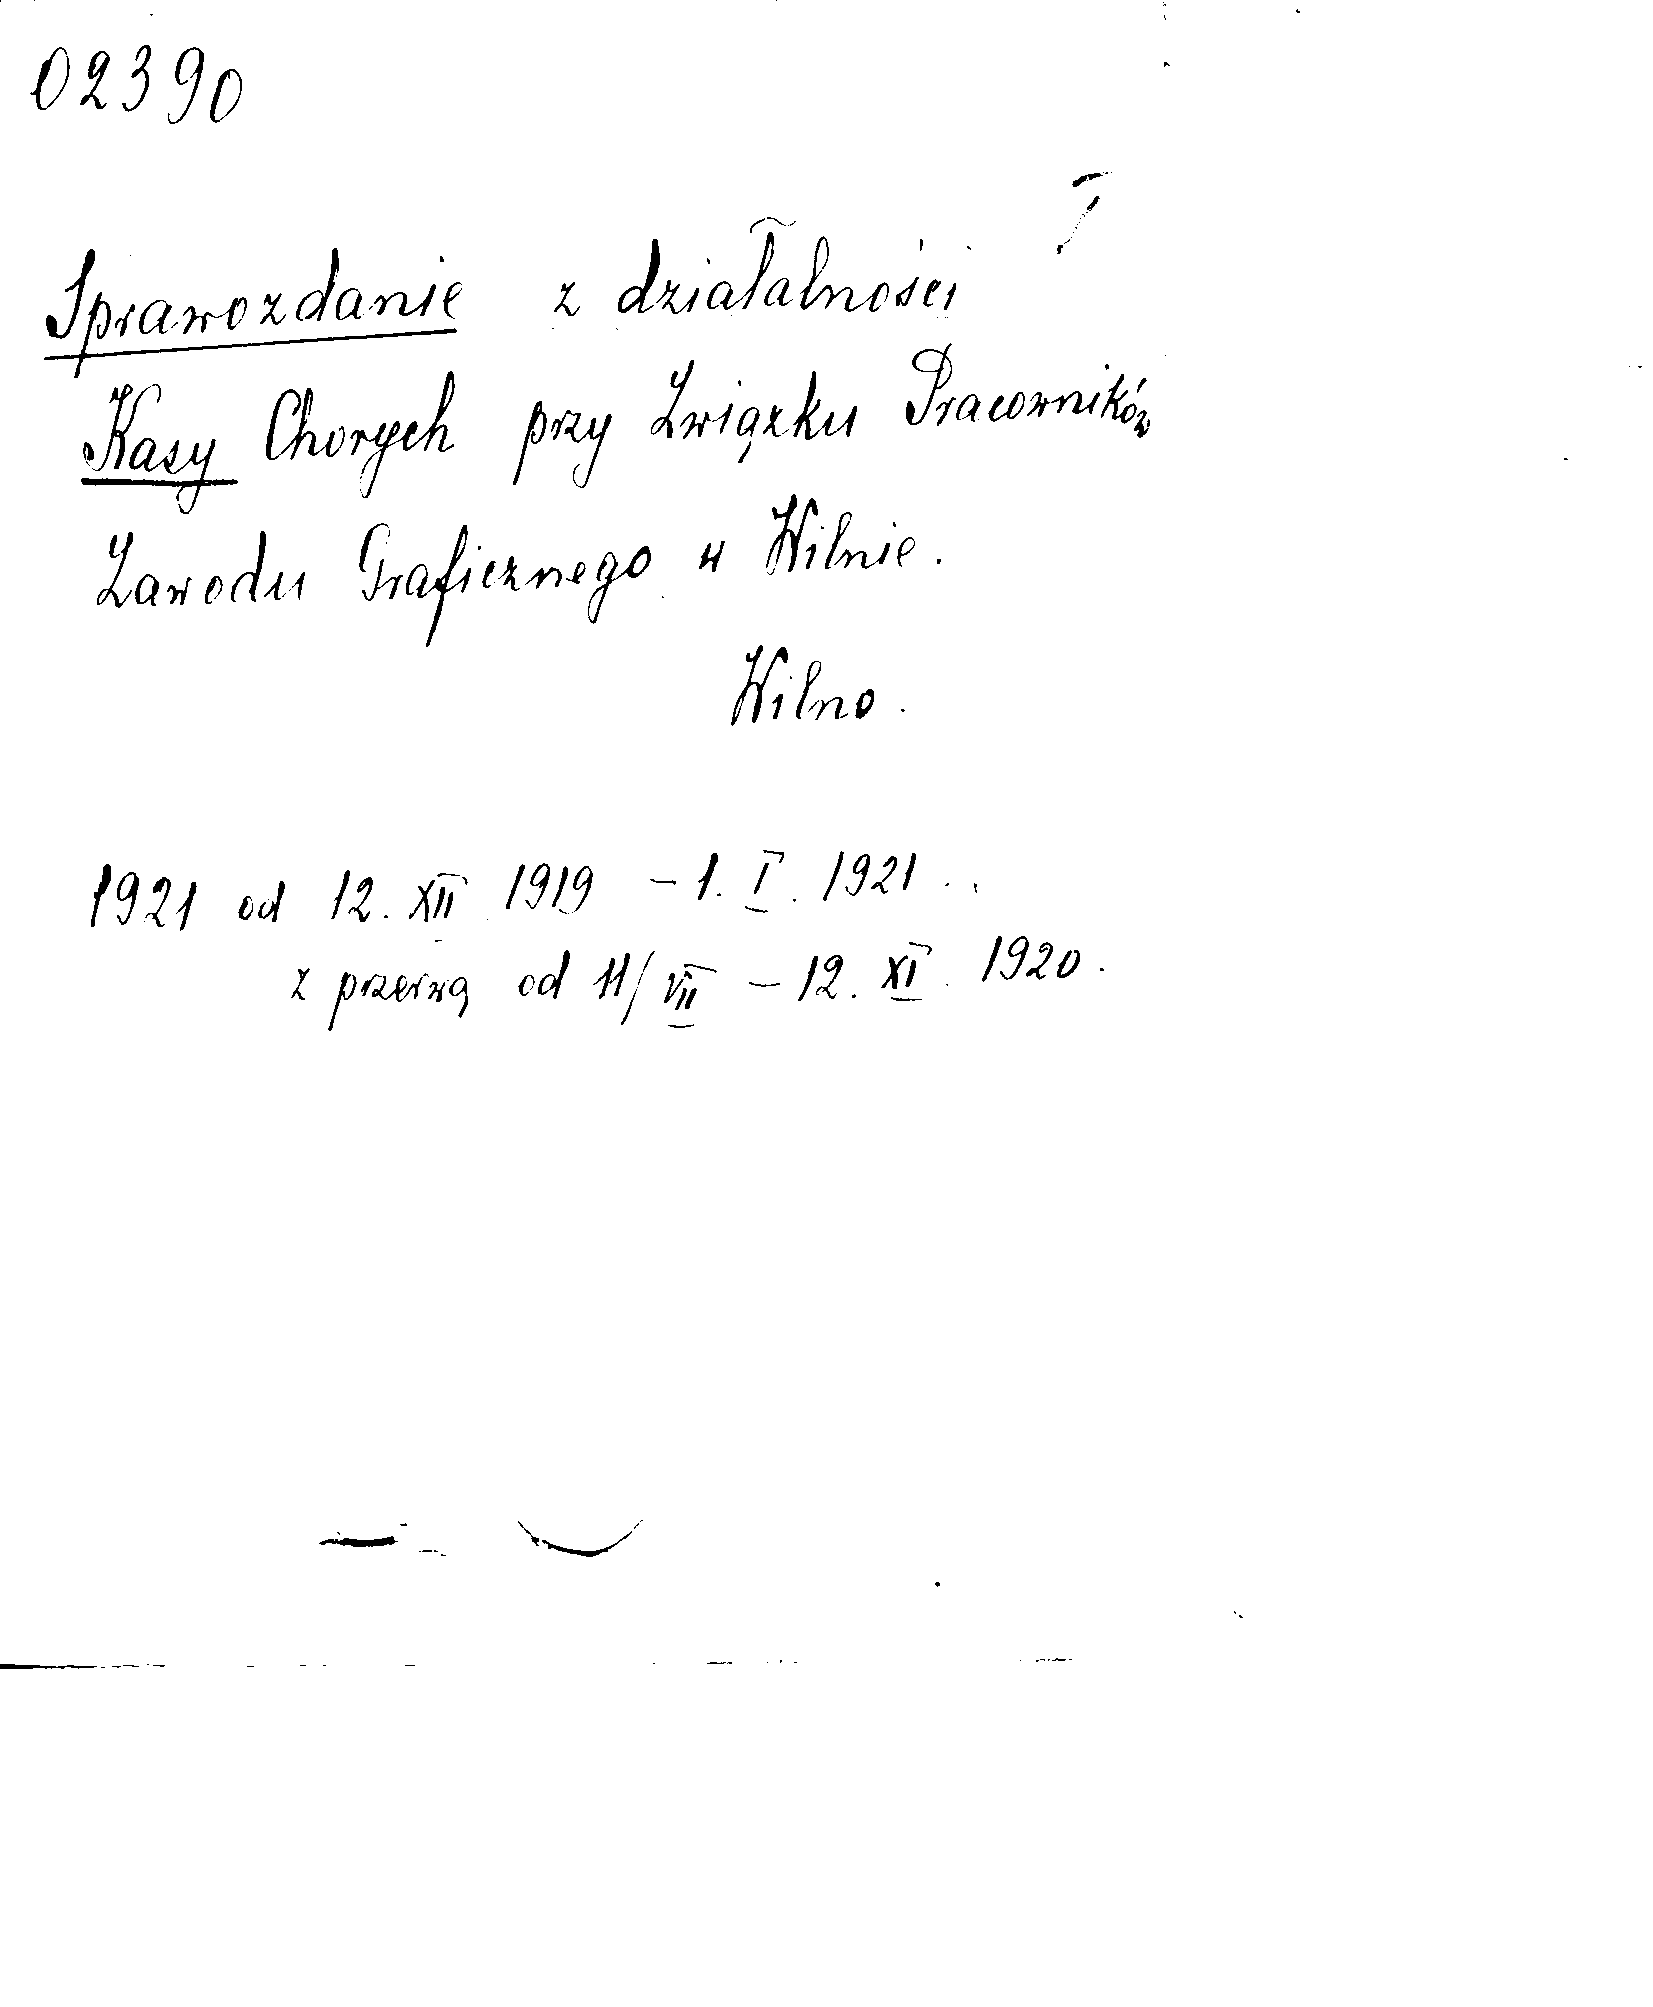 02390
I
Sprawozdanie z działalności
Kasy Chorych przy Związku Pracowników
Zawodu Graficznego w Wilnie.
Wilno.
1921 od 12. XII 1919 - 1. I. 1921.
z przerwą od 11/VII - 12. XI. 1920.